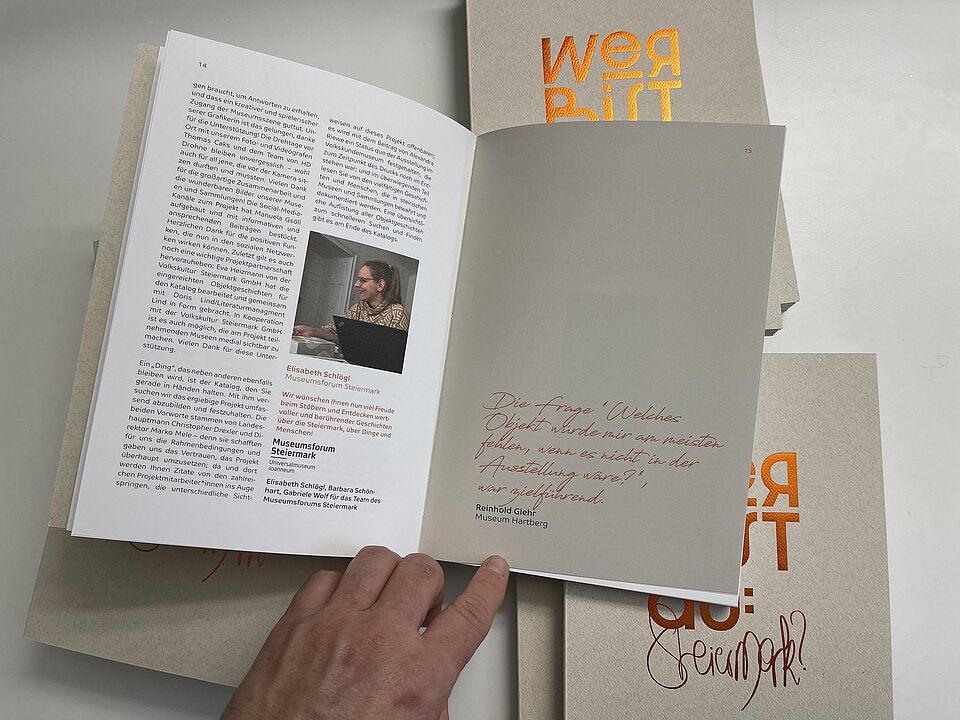 14
gen braucht, um Antworten zu erhalten,
und dass ein kreativer und spielerischer
Zugang der Museumsszene guttut. Un-
serer Grafikerin ist das gelungen, danke
für die Unterstützung! Die Drehtage vor
Ort mit unserem Foto- und Videografen
Thomas Caks und dem Team von HD
Drohne bleiben unvergesslich – wohl
auch für all jene, die vor der Kamera sit-
zen durften und mussten. Vielen Dank
für die großartige Zusammenarbeit und
die wunderbaren Bilder unserer Muse-
en und Sammlungen! Die Social-Media-
Kanäle zum Projekt hat Manuela Gsöll
aufgebaut und mit informativen und
ansprechenden Beiträgen bestückt.
Herzlichen Dank für die positiven Fun-
ken, die nun in den sozialen Netzwer-
ken wirken können. Zuletzt gilt es auch
noch eine wichtige Projektpartnerschaft
hervorzuheben: Eva Heizmann von der
Volkskultur Steiermark GmbH hat die
eingereichten Objektgeschichten für
den Katalog bearbeitet und gemeinsam
mit Doris Lind/Literaturmanagment
Lind in Form gebracht. In Kooperation
mit der Volkskultur Steiermark GmbH
ist es auch möglich, die am Projekt teil-
nehmenden Museen medial sichtbar zu
machen. Vielen Dank für diese Unter-
stützung.
Ein „Ding“, das neben anderen ebenfalls
bleiben wird, ist der Katalog, den Sie
gerade in Händen halten. Mit ihm ver-
suchen wir das ergiebige Projekt umfas-
send abzubilden und festzuhalten. Die
beiden Vorworte stammen von Landes-
hauptmann Christopher Drexler und Di-
rektor Marko Mele – denn sie schafften
für uns die Rahmenbedingungen und
gaben uns das Vertrauen, das Projekt
überhaupt umzusetzen; da und dort
werden Ihnen Zitate von den zahlrei-
chen Projektmitarbeiter*innen ins Auge
springen, die unterschiedliche Sicht-
weisen auf dieses Projekt offenbaren;
es wird mit dem Beitrag von Alexandra
Riewe ein Status quo der Ausstellung im
Volkskundemuseum festgehalten, die
zum Zeitpunkt des Drucks noch im Ent-
stehen war; und im überwiegenden Teil
lesen Sie von den vielfältigen Geschich-
ten und Menschen, die in steirischen
Museen und Sammlungen bewahrt und
dokumentiert werden. Eine übersichtli-
che Auflistung aller Objektgeschichten
zum schnelleren Suchen und Finden
gibt es am Ende des Katalogs.
Elisabeth Schlögl
Museumsforum Steiermark
Wir wünschen Ihnen nun viel Freude
beim Stöbern und Entdecken wert-
voller und berührender Geschichten
über die Steiermark, über Dinge und
Menschen!
Museumsforum
Steiermark
Universalmuseum
Joanneum
Elisabeth Schlögl, Barbara Schön-
hart, Gabriele Wolf für das Team des
Museumsforums Steiermark
15
Die Frage "Welches
Objekt würde mir am meisten
fehlen, wenn es nicht in der
Ausstellung wäre?",
war zielführend.
Reinhold Glehr
Museum Hartberg
Wer
BiST
du:
Steiermark?